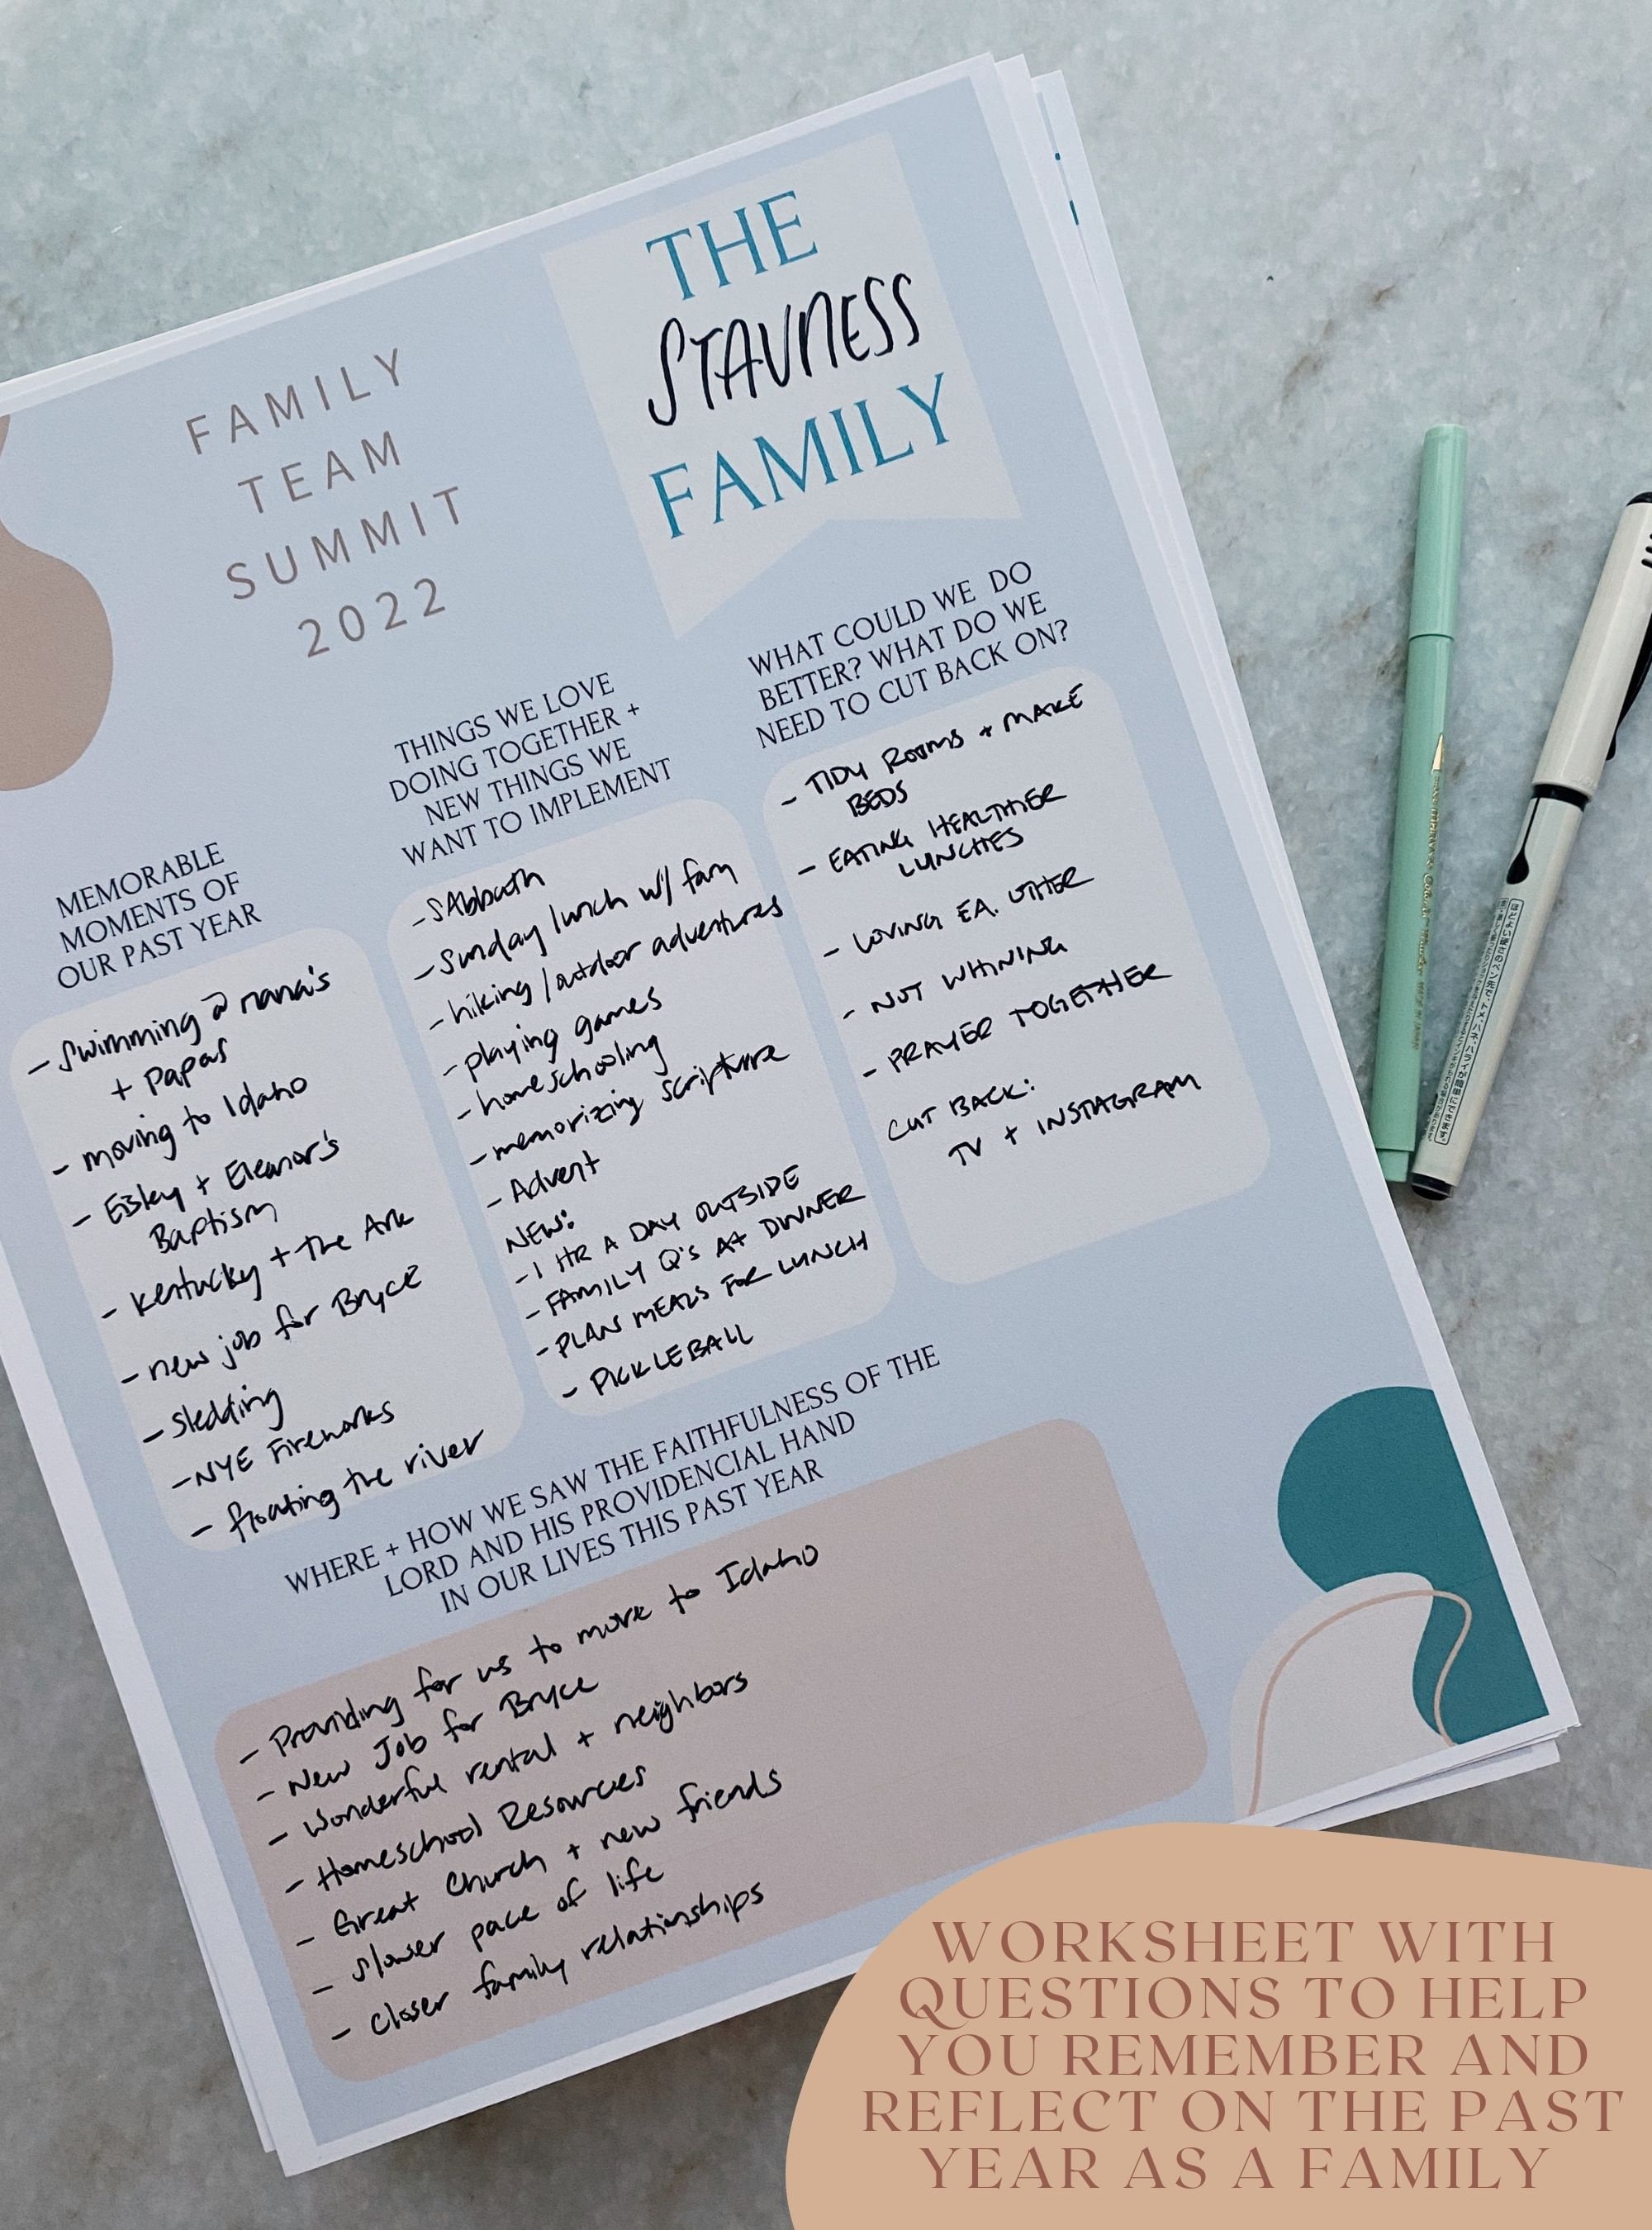 FAMILY
TEAM
SUMMIT
2022
THE
STAVNESS
FAMILY
MEMORABLE
MOMENTS OF
OUR PAST YEAR
- Swimming @ nana's
+ Papas
- moving to Idaho
- Eisley + Eleanor's
Baptism
- Kentucky + the Ark
- new job for Bryce
- Sledding
- NYE Fireworks
- floating the river
THINGS WE LOVE
DOING TOGETHER +
NEW THINGS WE
WANT TO IMPLEMENT
- SAbbath
- Sunday lunch w/ fam
- hiking / outdoor adventures
- playing games
- homeschooling
- memorizing Scripture
- Advent
NEW:
- 1 HR A DAY OUTSIDE
- FAMILY Q'S At DINNER
- PLAN MEALS FOR LUNCH
- PICKLEBALL
WHAT COULD WE DO
BETTER? WHAT DO WE
NEED TO CUT BACK ON?
- TIDY ROOMS + MAKE
BEDS
- EATING HEALTHIER
LUNCHES
- LOVING EA. OTHER
- NOT WHINING
- PRAYER TOGETHER
CUT BACK:
TV + INSTAGRAM
WHERE + HOW WE SAW THE FAITHFULNESS OF THE
LORD AND HIS PROVIDENCIAL HAND
IN OUR LIVES THIS PAST YEAR
- Providing for us to move to Idaho
- New Job for Bryce
- Wonderful rental + neighbors
- Homeschool Resources
- Great Church + new friends
- Slower pace of life
- Closer family relationships
WORKSHEET WITH
QUESTIONS TO HELP
YOU REMEMBER AND
REFLECT ON THE PAST
YEAR AS A FAMILY